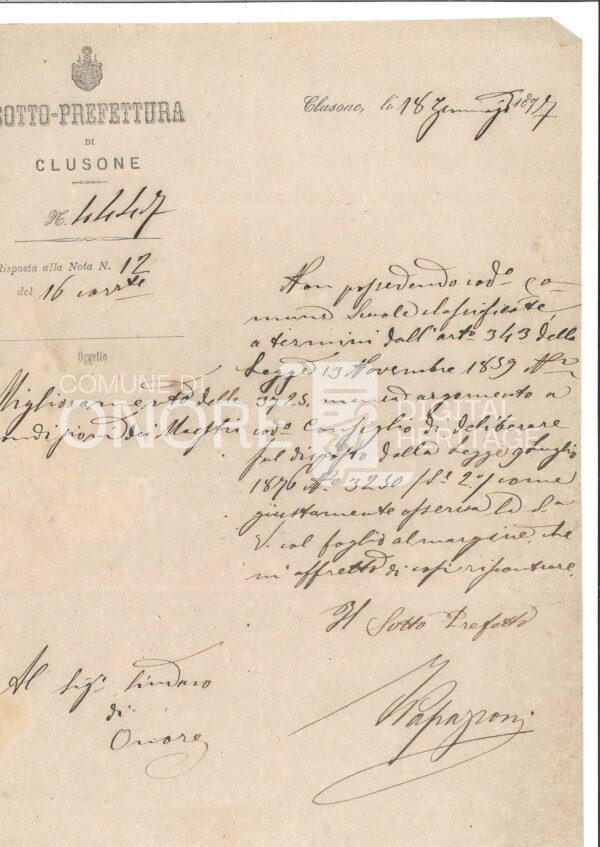 SOTTO-PREFETTURA
DI
CLUSONE
N. 4447
Risposta alla Nota N. 12
del 16 corrte
Oggetto
Miglioramento delle
condizioni dei Maestri
Clusone, li 18 Gennajo 1877
Non possedendo codo Co-
mune Scuole classificate,
a termini dall'arto 343 della
Legge 13 Novembre 1859 No
3725, manca argomento a
codo Consiglio di deliberare
sul disposto dalla Legge 9 Luglio
1876 No 3250 /Sa 2a/ come
giustamente osserva la Sa
V. col foglio al margine, che
m'affretto di così riscontrare.
Il Sotto Prefetto
Al Sigr Sindaco
di
Onore
COMUNE DI
ONORE
DIGITAL
HERITAGE